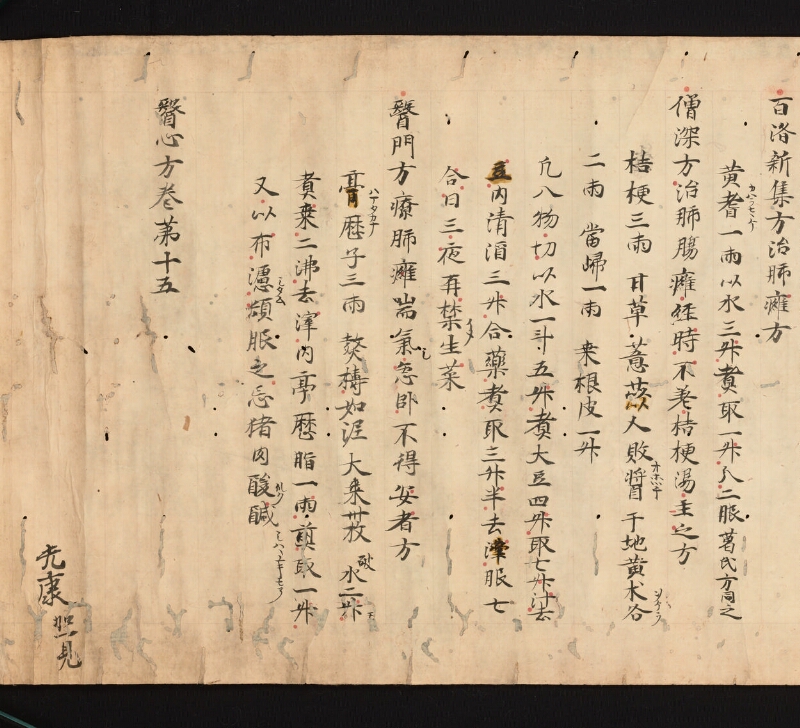 百済新集方治肺癰方
黄耆一両以水三升煮取一升分二服葛氏方同之
僧深方治肺腸癰経時不差桔梗湯主之方
桔梗三両 甘草 薏苡人 敗醤 干地黄 朮各
二両 當歸一両 桒根皮一升
凢八物切以水一斗五升煮大豆四升取七升汁去
豆内清酒三升合藥煮取三升半去滓服七
合日三夜再禁生菜
醫門方療肺癰喘氣急卧不得安者方
葶歷子三両 熬搗如泥 大枣廿枚 擘 水二升
煮枣二沸去滓内葶歷脂一両煎取一升
又以布濾頓服之忌猪肉酸鹹
醫心方巻第十五
光康 照見